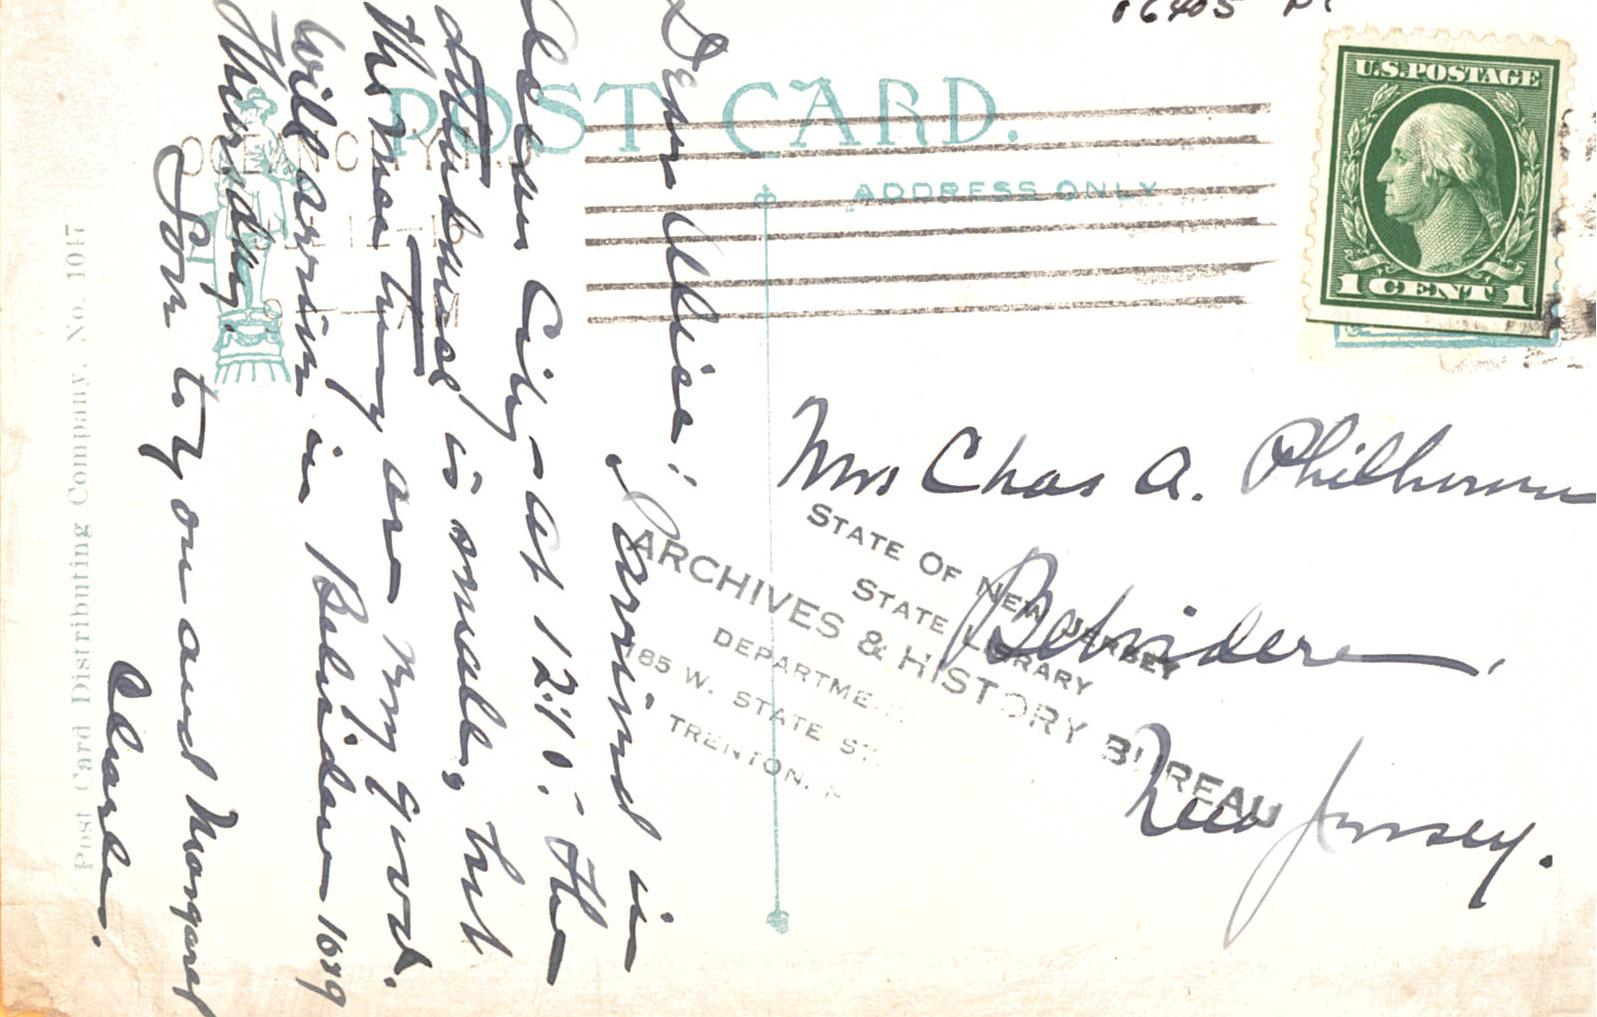 POST CARD.
ADDRESS ONLY
U.S. POSTAGE
1 CENT 1
OCEAN CITY
Dear Allie:
I arrived in
Ocean City - at 12:10. The
attendance is small, but
they are very good.
Will arrive in Belvidere 1689
Thursday.
Love to you and Margaret
Charles.
Mrs Chas A. Philhower
Belvidere,
New Jersey.
STATE OF NEW JERSEY
STATE LIBRARY
ARCHIVES & HISTORY BUREAU
DEPARTME
185 W. STATE ST.
TRENTON, N
Post Card Distributing Company, No. 1047